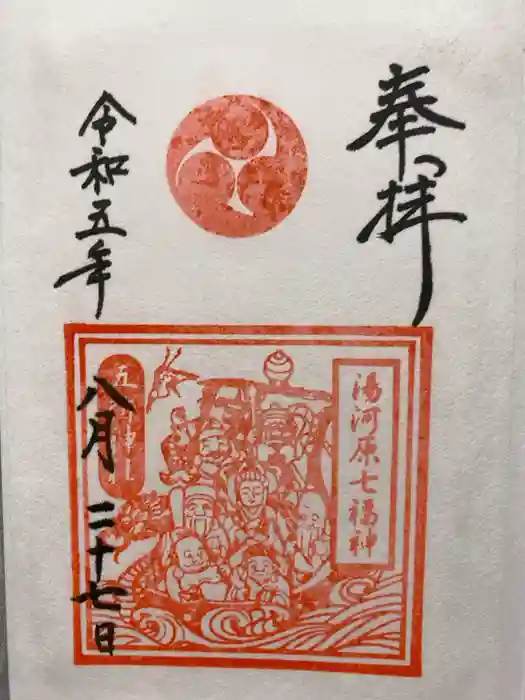 奉拝
湯河原七福神
五所神社
令和五年
八月二十七日